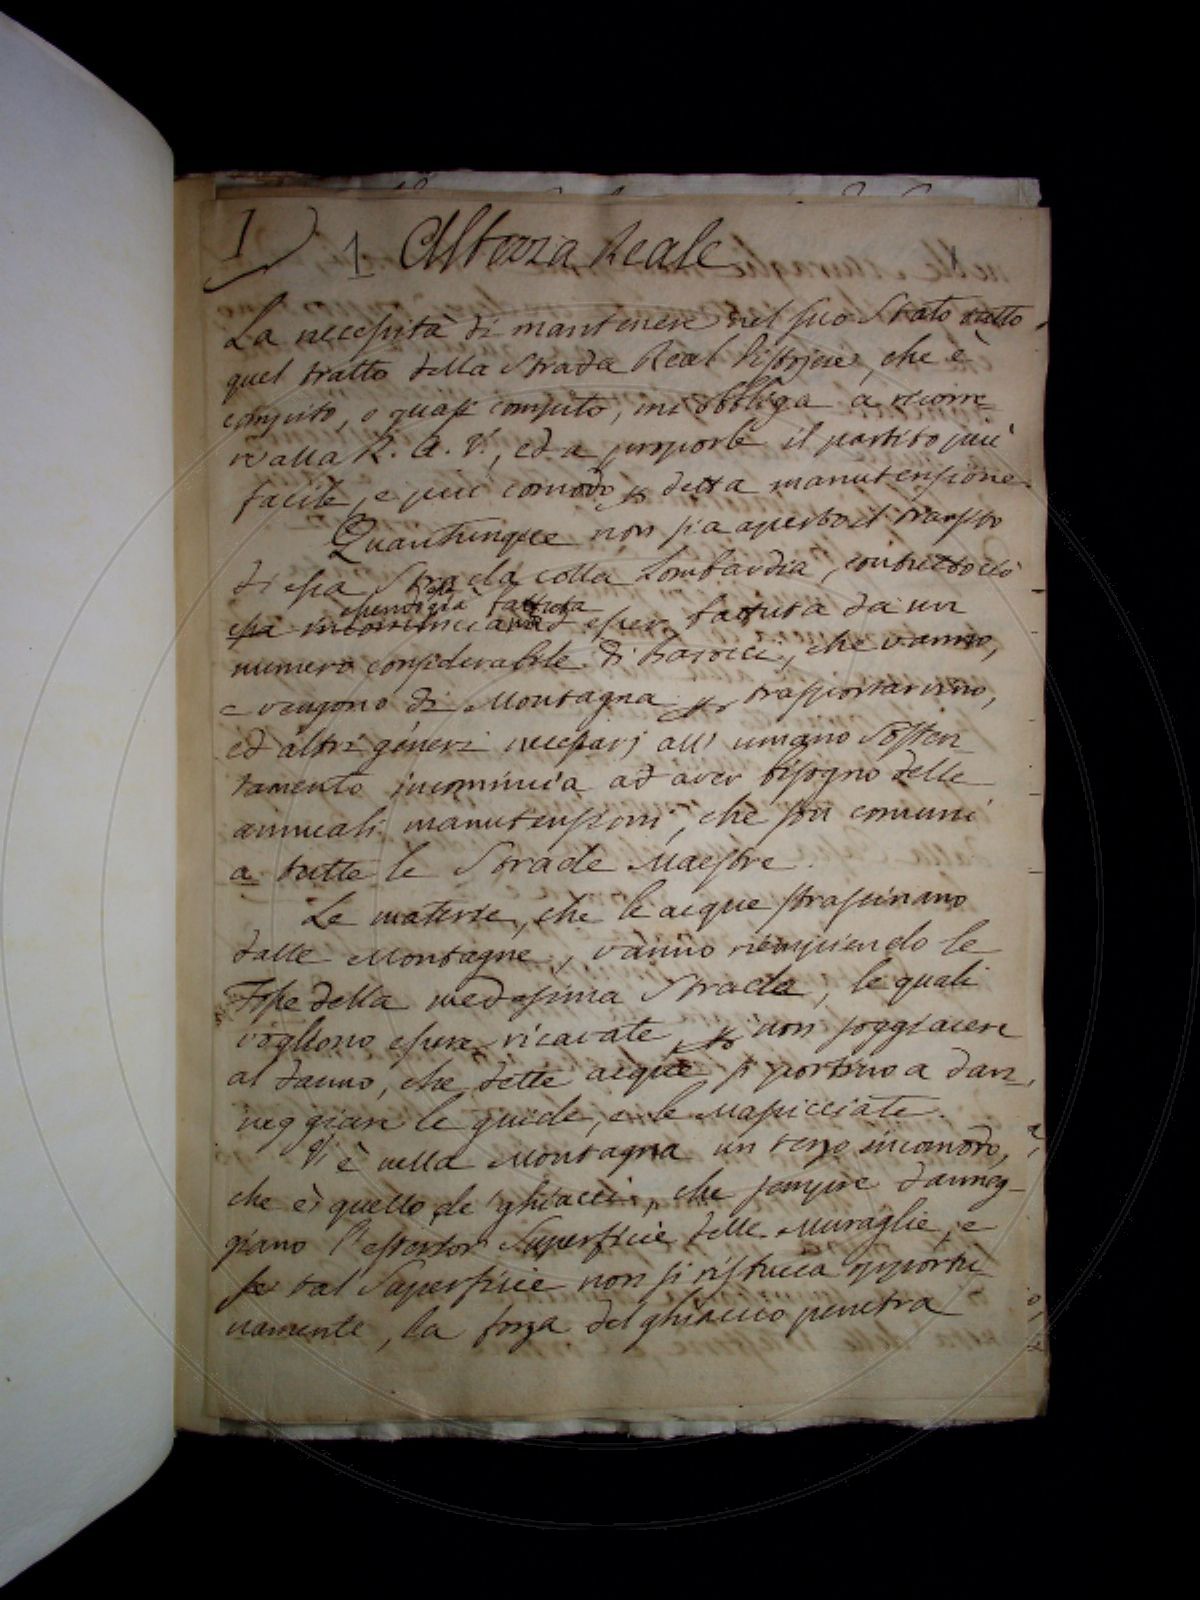 1) 1 Altezza Reale
La necessità di mantenere nel suo Stato tutto
quel tratto della Strada Real Pistojese, che è
compito, o quasi compito, mi obbliga a ricorre-
re alla R. A. V., ed a proporle il partito più
facile, e più comodo detta manutensione.
Quantunque non sia aperto il
di essa Strada colla Lombardia, contuttociò
essendo già battuta
essa ad esser battuta da un
numero considerabile di Barocci, che vanno,
e vengono di Montagna trasportar vino,
ed altri generi necessarj all' umano Sosten
tamento incomincia ad aver bisogno delle
annuali manutensioni, che son comuni
a tutte le Strade Maestre.
Le materie, che le acque strascinano
dalle Montagne, vanno riempiendo le
Fosse della medesima Strada, le quali
vogliono essere ricavate, non soggiacere
al danno, che dette acque si portino a dan,
neggiare le guide, e le Massicciate.
Vi è nella Montagna un terzo incomodo,
che è quello de' ghiacci, che sempre danneg-
giano l'esterior Superficie delle Muraglie, e
se tal Superficie non si ristucca opportu-
namente, la forza del ghiaccio penetra